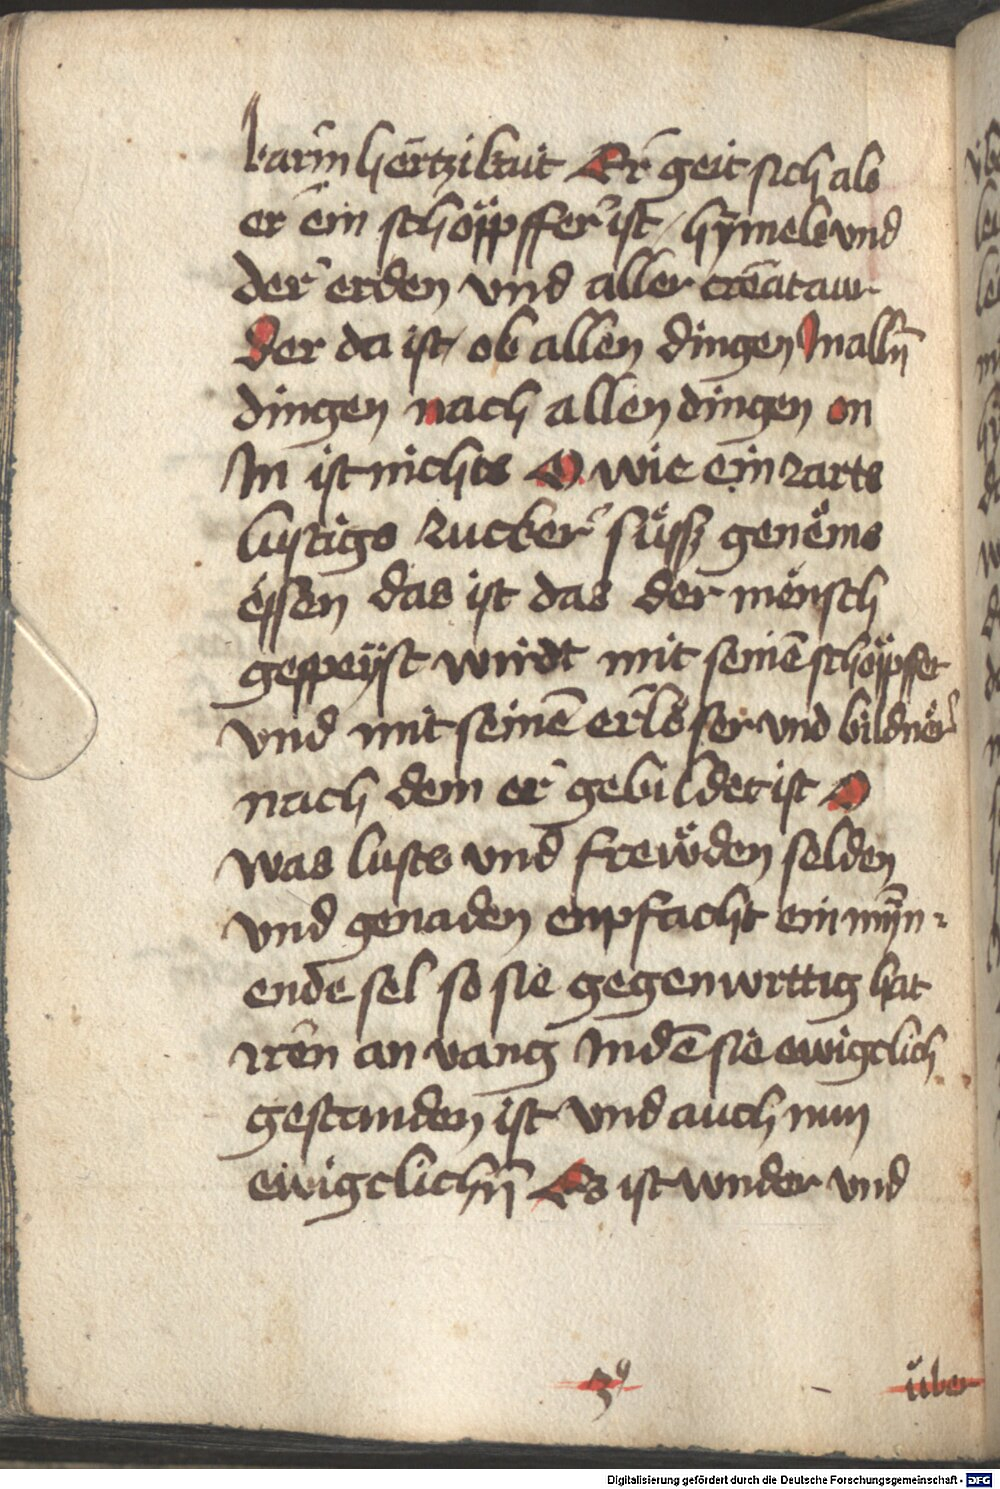 barmhertzikait Er geit sich als
er ein schöpffer ist / hymels vnd
der erden vnd aller creatawr
Der da ist / ob allen dingen In alln̄
dingen nach allen dingen on
In ist nichts O wie ein zarts
lustigs zucker süssz genëms
essen das ist das der mensch
gespeÿst wirdt mit seinē schöpffer
vnd mit seinē erlöser vnd bildner
nach dem er gebildet ist O
was lusts vnd frewden selden
vnd genaden enpfacht ein mÿn-
ende sel so sie gegenwrttig hat
iren an vang In dē sie ewigclich
gestanden ist vnd auch nun
ewigclichn̄ Es ist wnder vnd
über
Digitalisierung gefördert durch die Deutsche Forschungsgemeinschaft - DFG